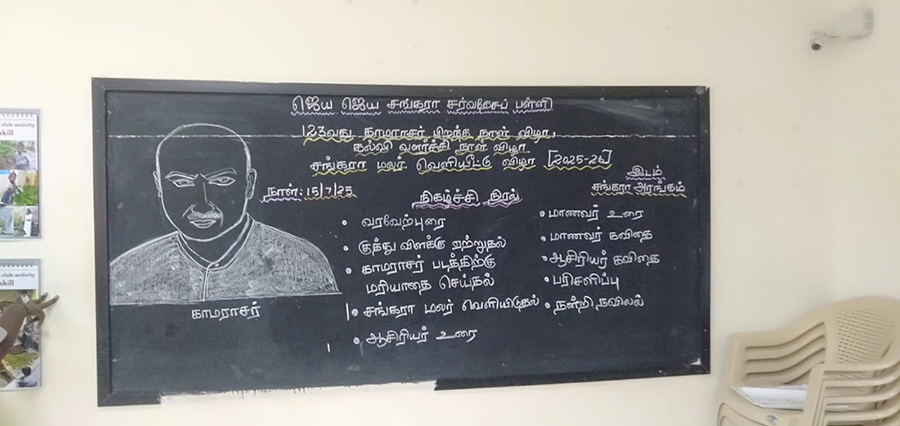 ஜெய ஜெய சங்கரா சர்வதேசப் பள்ளி
123வது காமராசர் பிறந்த நாள் விழா,
கல்வி வளர்ச்சி நாள் விழா.
சங்கரா மலர் வெளியீட்டு விழா [2025-26]
நாள்: 15/7/25
இடம்
சங்கரா அரங்கம்
நிகழ்ச்சி நிரல்
• வரவேற்புரை
• குத்து விளக்கு ஏற்றுதல்
• காமராசர் படத்திற்கு
மரியாதை செய்தல்
• சங்கரா மலர் வெளியிடுதல்
• ஆசிரியர் உரை
• மாணவர் உரை
• மாணவர் கவிதை
• ஆசிரியர் கவிதை
• பரிசளிப்பு
• நன்றி நவிலல்
காமராசர்
club activity
skill
club activity
skill